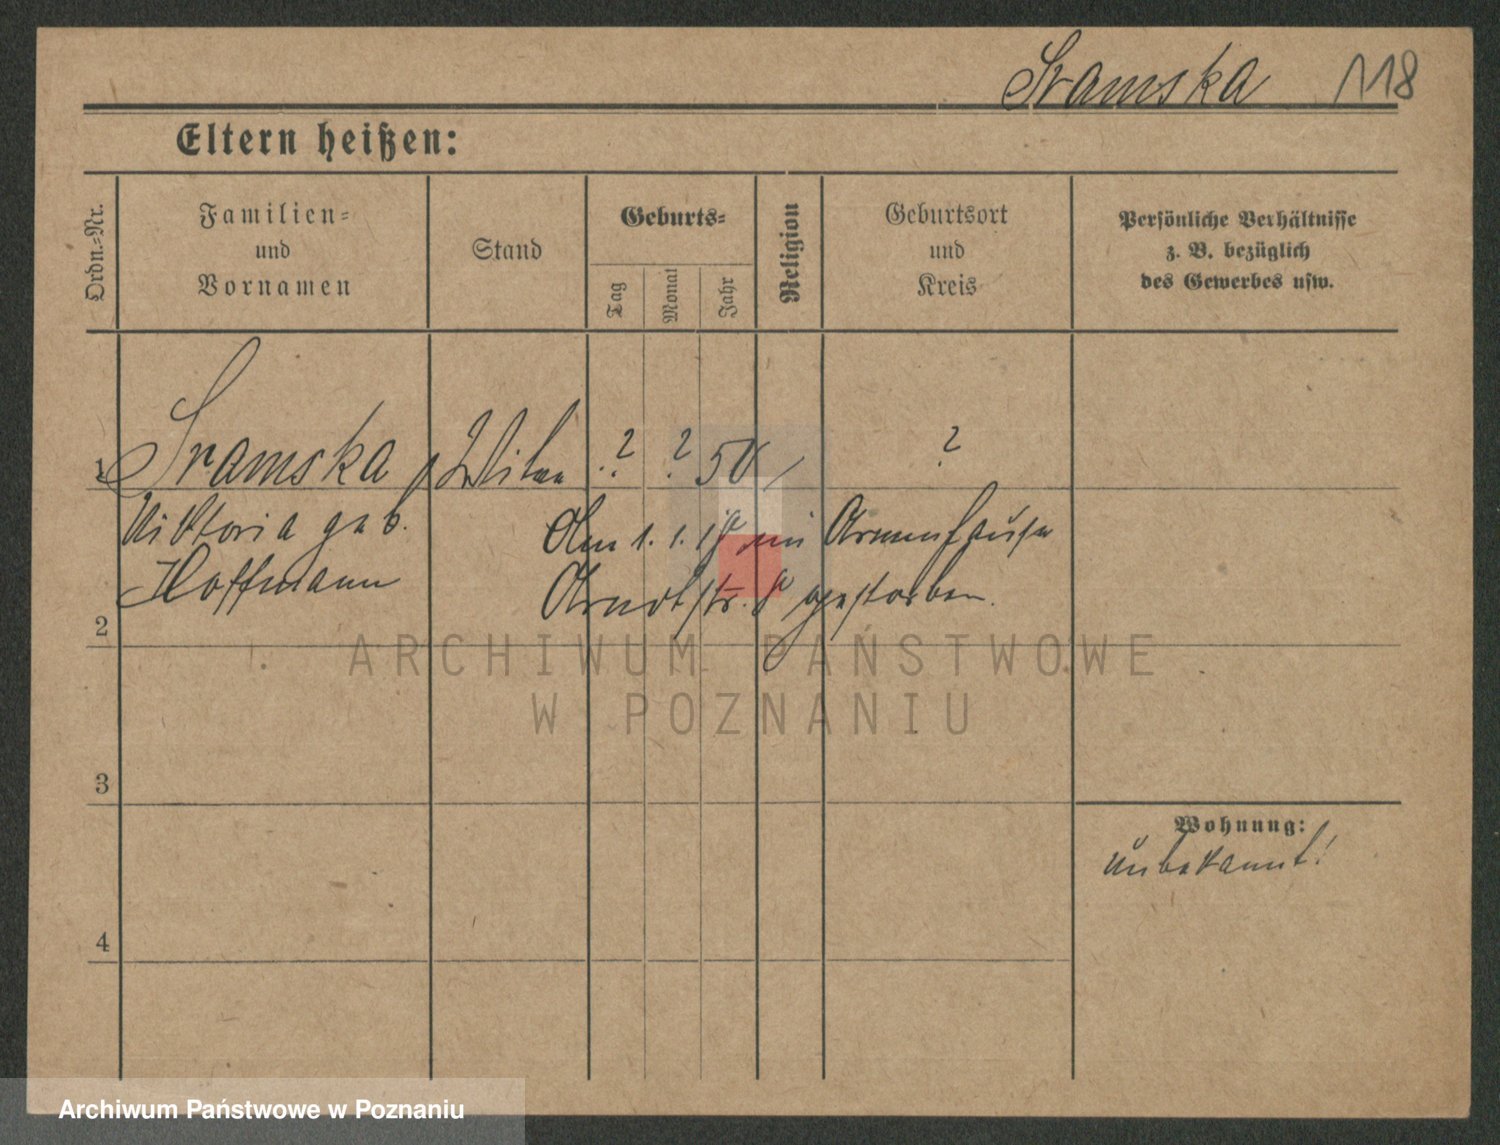 Sramska 118
Eltern heißen:
Ordn.=Nr.
Familien=
und
Vornamen
Stand
Geburts=
Tag
Monat
Jahr
Religion
Geburtsort
und
Kreis
Persönliche Verhältnisse
z. B. bezüglich
des Gewerbes usw.
1 Sramska, Witwe ? ? 50 / ?
Viktoria geb. Am 1. 1. im Armenhause
Hoffmann Arndtstr. gestorben.
2
3
Wohnung:
unbekannt!
4
ARCHIWUM PAŃSTWOWE
W POZNANIU
Archiwum Państwowe w Poznaniu